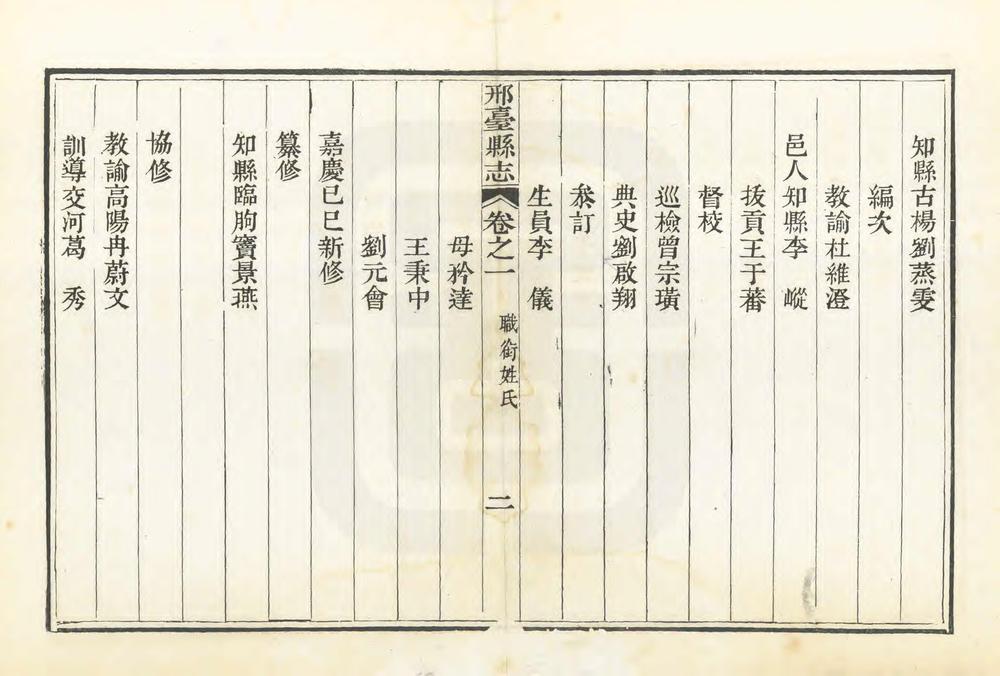 知縣古楊劉蒸雯
編次
教諭杜維澄
邑人知縣李　嵷
拔貢王于蕃
督校
巡檢曾宗璜
典史劉啟翔
叅訂
生員李　儀
邢臺縣志
卷之一
職銜姓氏
二
毋矜達
王秉中
劉元會
嘉慶己巳新修
纂修
知縣臨朐竇景燕
協修
教諭高陽冉蔚文
訓導交河葛　秀